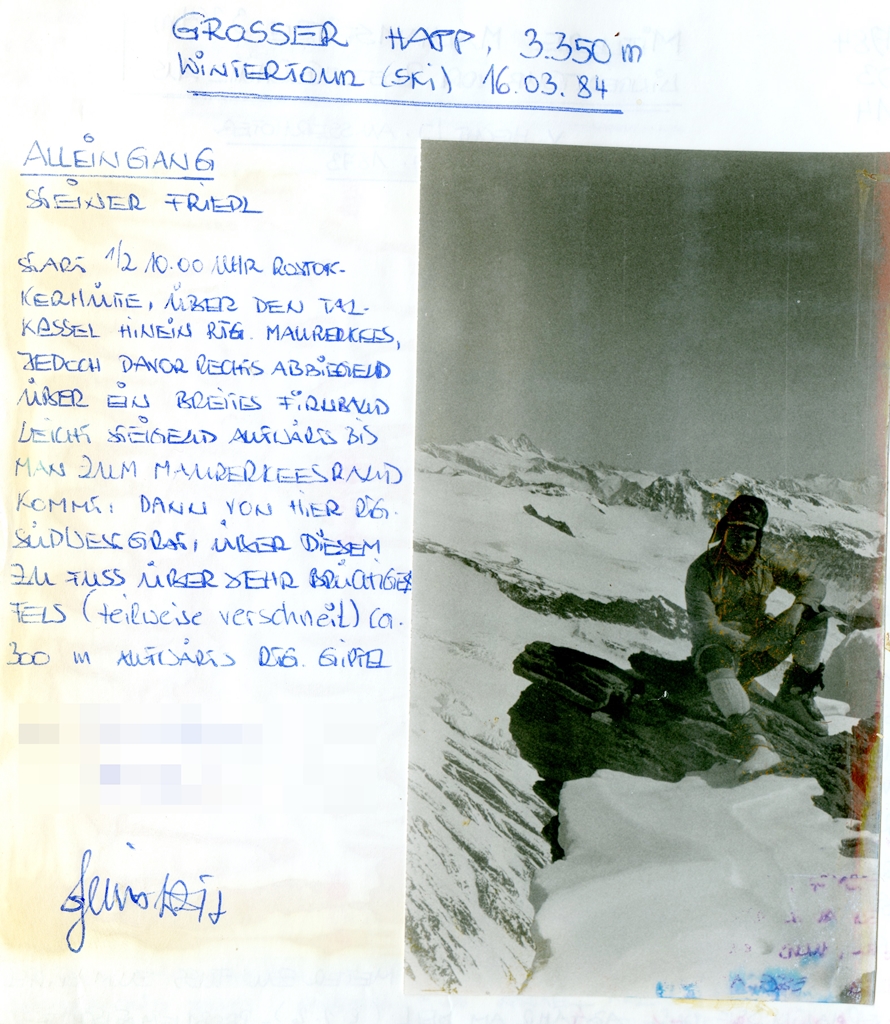 GROSSER HAPP, 3.350 m
WINTERTOUR (SKI) 16.03.84
ALLEINGANG
STEINER FRIEDL
START 1/2 10.00 UHR ROSTOK-
KERHÜTTE, ÜBER DEN TAL-
KESSEL HINEIN RTG. MAURERKEES,
JEDOCH DAVOR RECHTS ABBIEGEND
ÜBER EIN BREITES FIRNBAND
LEICHT STEIGEND AUFWÄRTS BIS
MAN ZUM MAURERKEESRAND
KOMMT. DANN VON HIER RTG.
SÜDWESTGRAT, ÜBER DIESEM
ZU FUSS ÜBER SEHR BRÜCHIGES
FELS (teilweise verschneit) ca.
300 m AUFWÄRTS RTG. GIPFEL